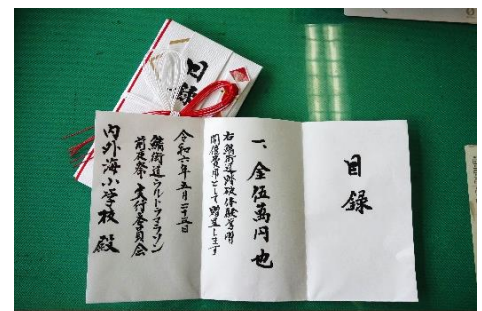 目録
一、金伍萬円也
右鯖街道踏破体験学習
関係費用として贈呈します
令和六年五月二十五日
鯖街道ウルトラマラソン
前夜祭実行委員会
内外海小学校殿
目録